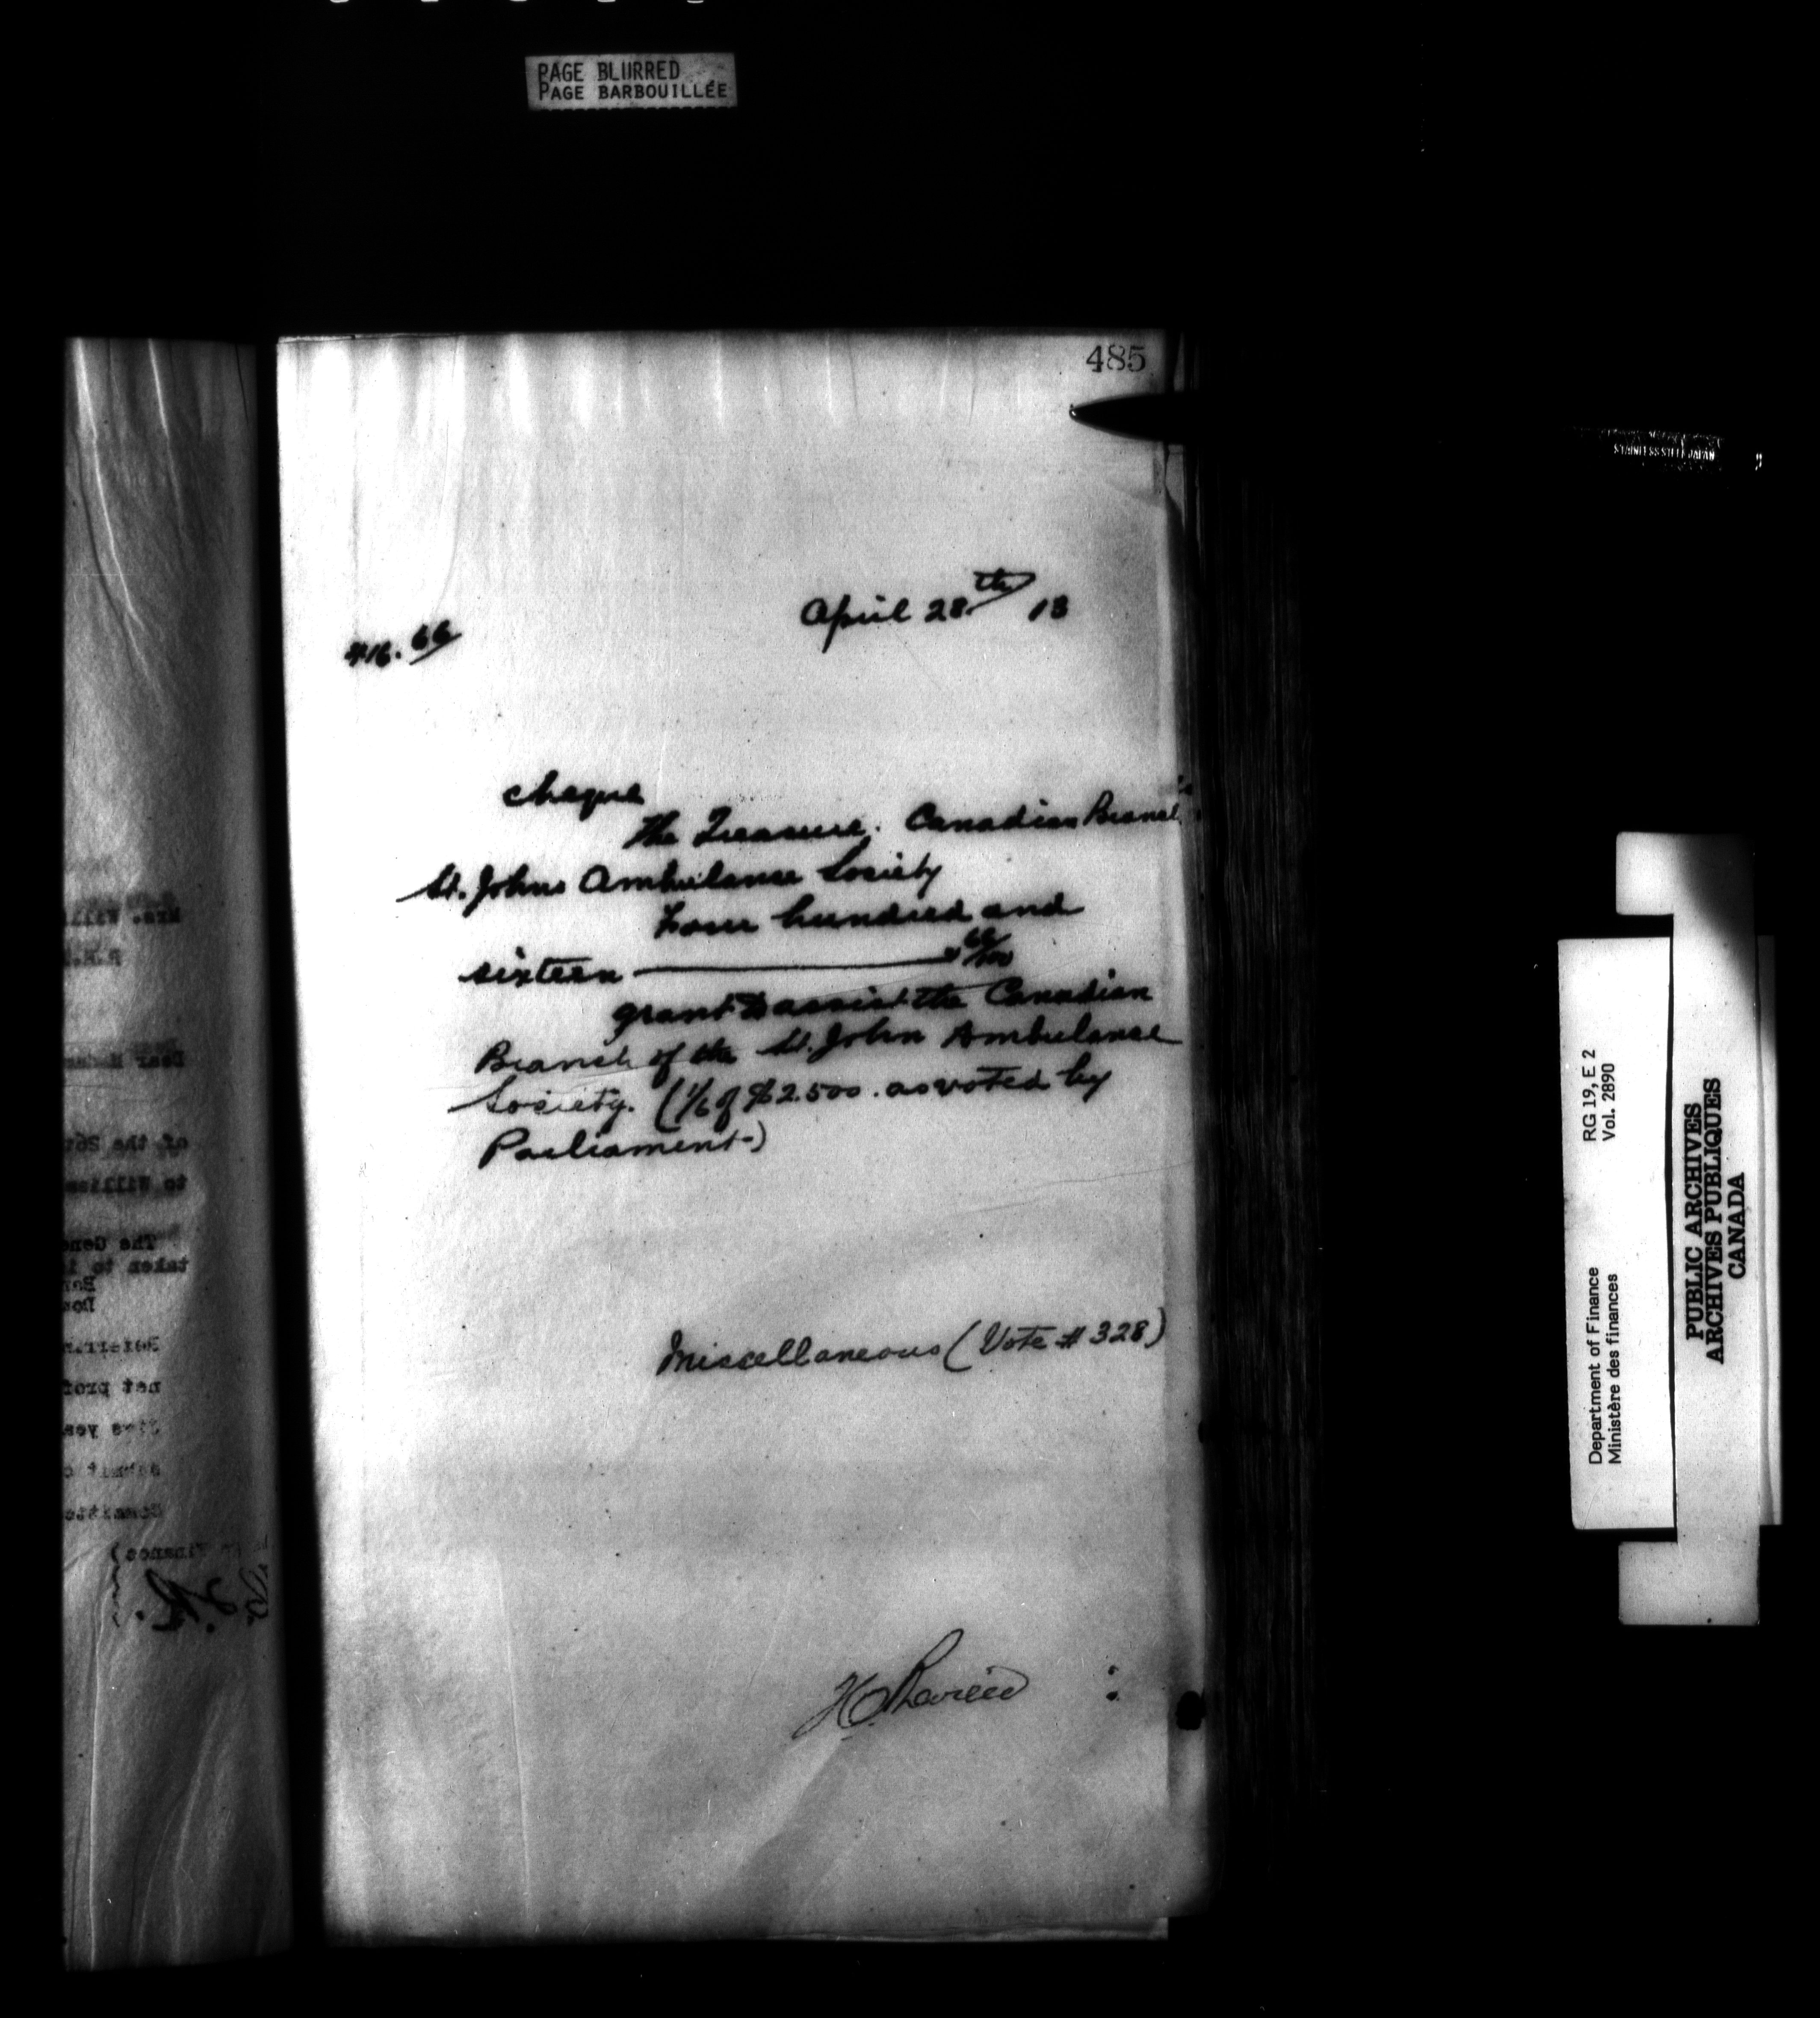 PAGE BLURRED
PAGE BARBOUILLÉE
485
STAINLESS STEEL JAPAN
April 28th 13
416.66
cheque
The Treasurer. Canadian Branch
St. Johns Ambulance Society
Four hundred and
sixteen ———— 66/100
grant to assist the Canadian
Branch of the St. John Ambulance
Society. (1/6 of $2.500. as voted by
Parliament-)
Miscellaneous (Vote # 328)
Mrs. Will
Dear Madam
of the 26t
to William
The Gene
taken to i
net prof
Committe
Finance)
RG 19, E 2
Vol. 2890
Department of Finance
Ministère des finances
PUBLIC ARCHIVES
ARCHIVES PUBLIQUES
CANADA